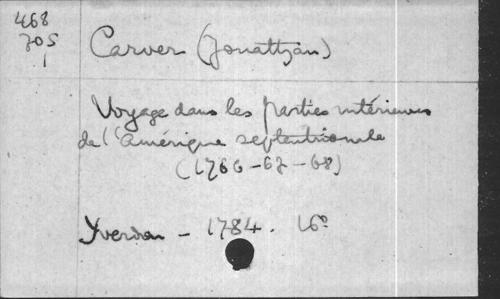 468
705
1
Carver (Jonathan)
Voyage dans les parties intérieures
de l'Amérique septentrionale
(1766-67-68)
Yverdon - 1784. 16°